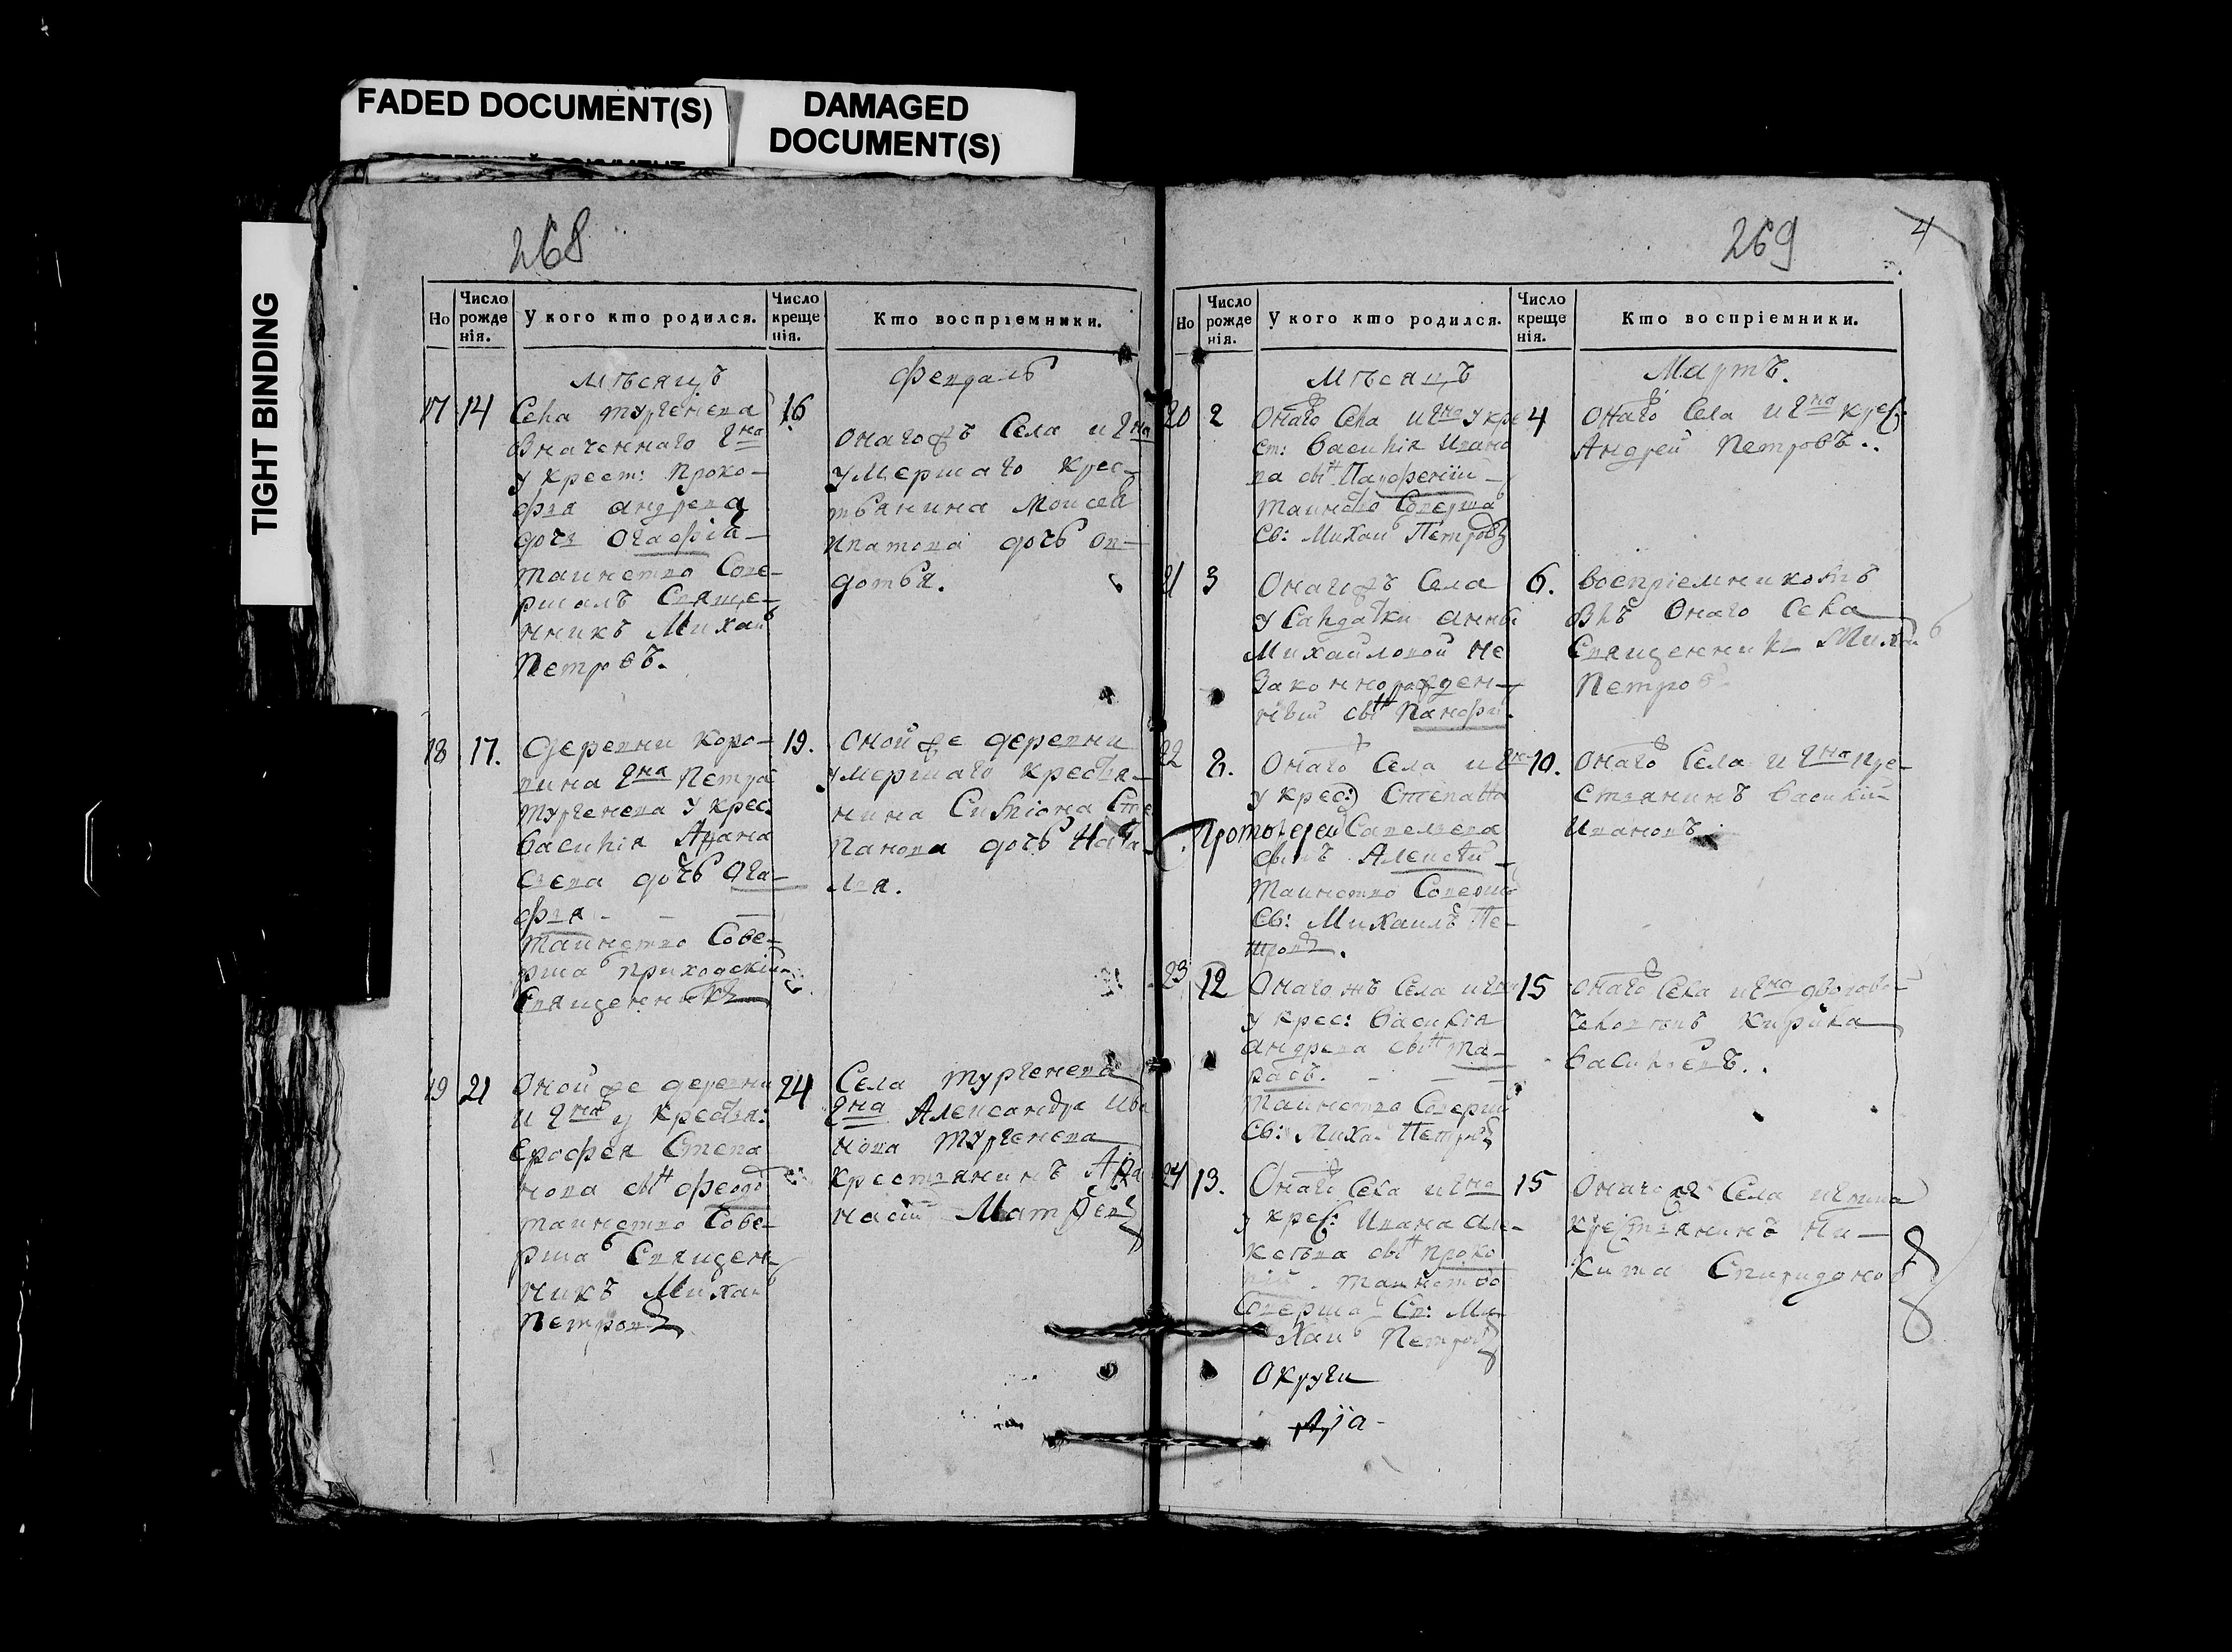 FADED DOCUMENT(S)
DAMAGED
DOCUMENT(S)
TIGHT BINDING
268
Но
Число рожде нія.
У кого кто родился.
Число креще нія.
Кто воспріемники.
Мѣсяцъ
Февраль
17 14
Села Тургенева
значеннаго Гна
у крест: Проко-
фія Андрева
дочь Агафіа
таинство Сове-
ршалъ Священ-
никъ Михаи
Петровъ.
16
онагожъ Села и Гна
умершаго крес-
тьянина Моисея
Ипатова дочь Ов-
дотья.
18 17.
Деревни Коро-
вина Гна Петра
Тургенева у крес:
Василія Афана
сьева дочь Ага-
фія
таинство Сове-
рша приходскій
Священникъ
19.
Оной же деревни
умершаго крестья-
нина Симіона Сте
панова дочь Ната-
лья.
19 21
Оной же деревни
и Гна у крестья:
Ерофея Степа
нова сынъ Феодо
таинство Сове-
рша Священ-
никъ Михаи
Петровъ
24
Села Тургенева
Гна Александра Ива
нова Тургенева
крестьянинъ Афа
насій Матвеевъ
269
4
Но
Число рожде нія.
У кого кто родился.
Число креще нія.
Кто воспріемники.
Мѣсяцъ
Мартъ.
20 2
Онаго Села и Гна у кре
ст: Василія Ивано
ва сынъ Панфеній
таинство Соверша
Св: Михаи Петровъ
4
Онаго Села и Гна крес:
Андрей Петровъ.
21 3
Онагожъ Села
у Салдатки Анны
Михайловой не
законнорожден-
ный сынъ Панфи
6.
воспріемникомъ
былъ Онаго Села
Священникъ Михаи
Петров
22 8.
Онаго Села и Гна
у крес: Степана
Протоіерей Савельева
сынъ Алексѣй
таинство Соверш
Св: Михаилъ Пе-
тровъ.
10.
Онаго Села и Гна кре-
стьянинъ Василій
Ивановъ
23 12
Онаго жъ Села и Гна
у крес: Василія
Андрева сынъ Та-
расъ.
таинство Соверш
Св: Михаи Петровъ
15
Онаго Села и Гна дворовы
человѣкъ Кирила
Васильевъ.
24 13.
Онаго Села и Гна
у крес: Ивана Але-
ксѣева сынъ Проко
пій. таинство
Соверша Св: Ми-
хаи Петровъ
15
Онаго же Села и Гна
крестьянинъ Ни-
кита Спиридонов
Округи